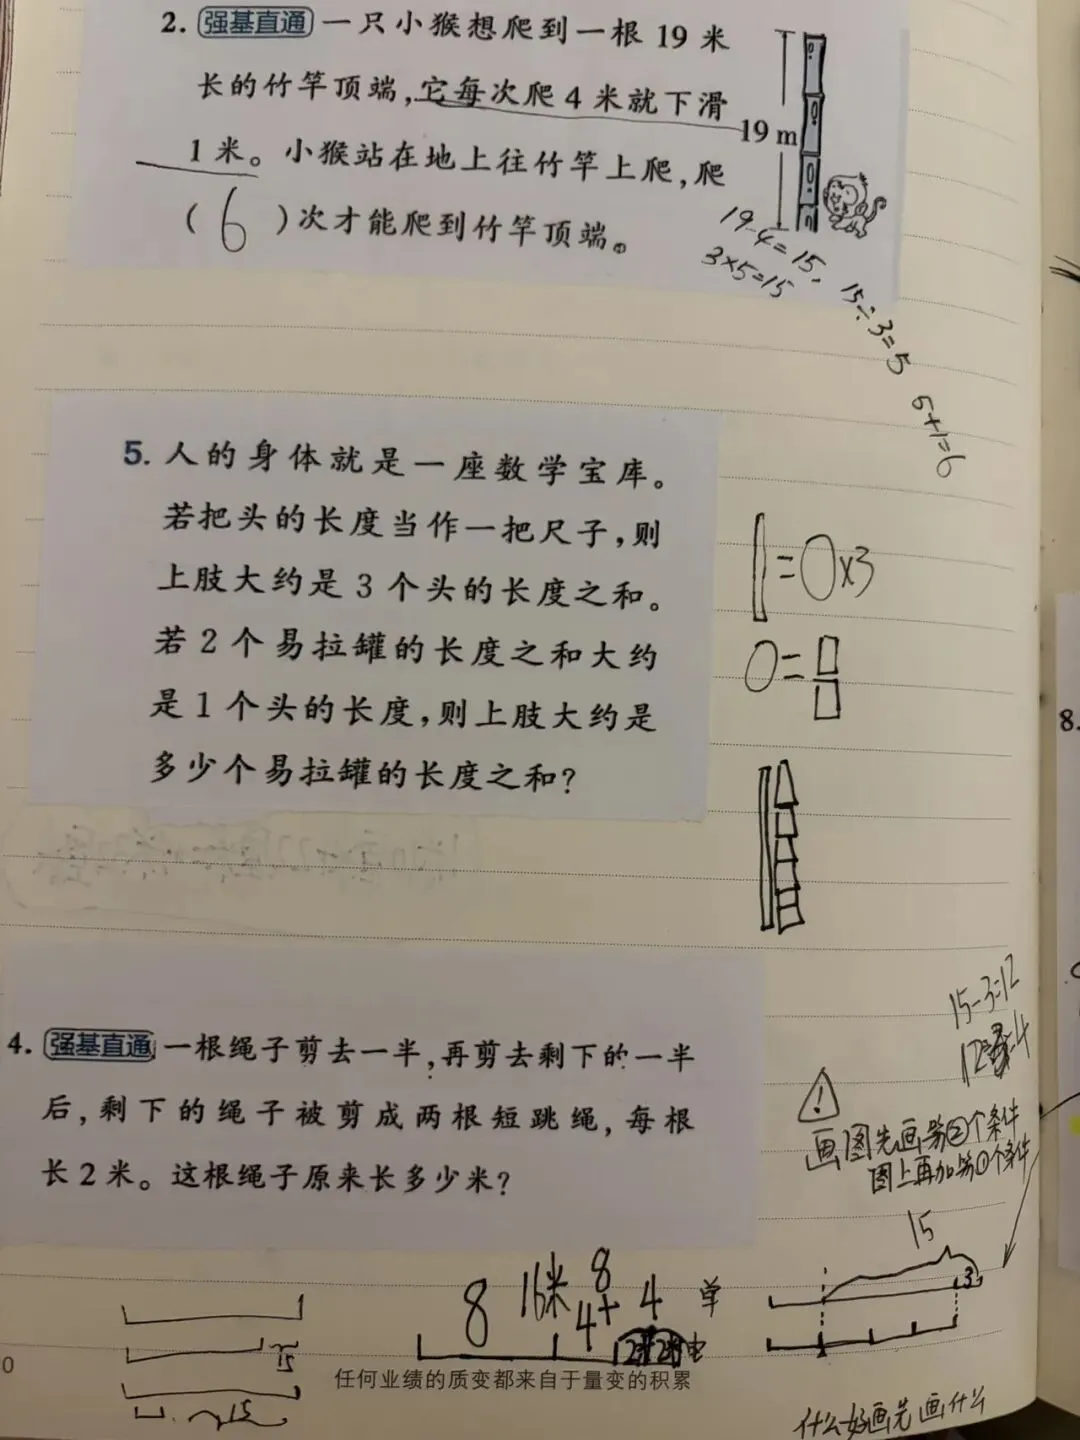 2. 强基直通 一只小猴想爬到一根 19 米
长的竹竿顶端,它每次爬 4 米就下滑
1 米。小猴站在地上往竹竿上爬,爬
( 6 )次才能爬到竹竿顶端。
19 m
19-4=15,
3×5=15
15÷3=5
5+1=6
5. 人的身体就是一座数学宝库。
若把头的长度当作一把尺子,则
上肢大约是 3 个头的长度之和。
若 2 个易拉罐的长度之和大约
是 1 个头的长度,则上肢大约是
多少个易拉罐的长度之和?
=0×3
0=
8.
4. 强基直通 一根绳子剪去一半,再剪去剩下的一半
后,剩下的绳子被剪成两根短跳绳,每根
长 2 米。这根绳子原来长多少米?
15-3=12
!
画图先画第②个条件
图上再加第①个条件
15
3
8 16米 8
4+4
单
15
15
0
任何业绩的质变都来自于量变的积累
什么好画先画什么